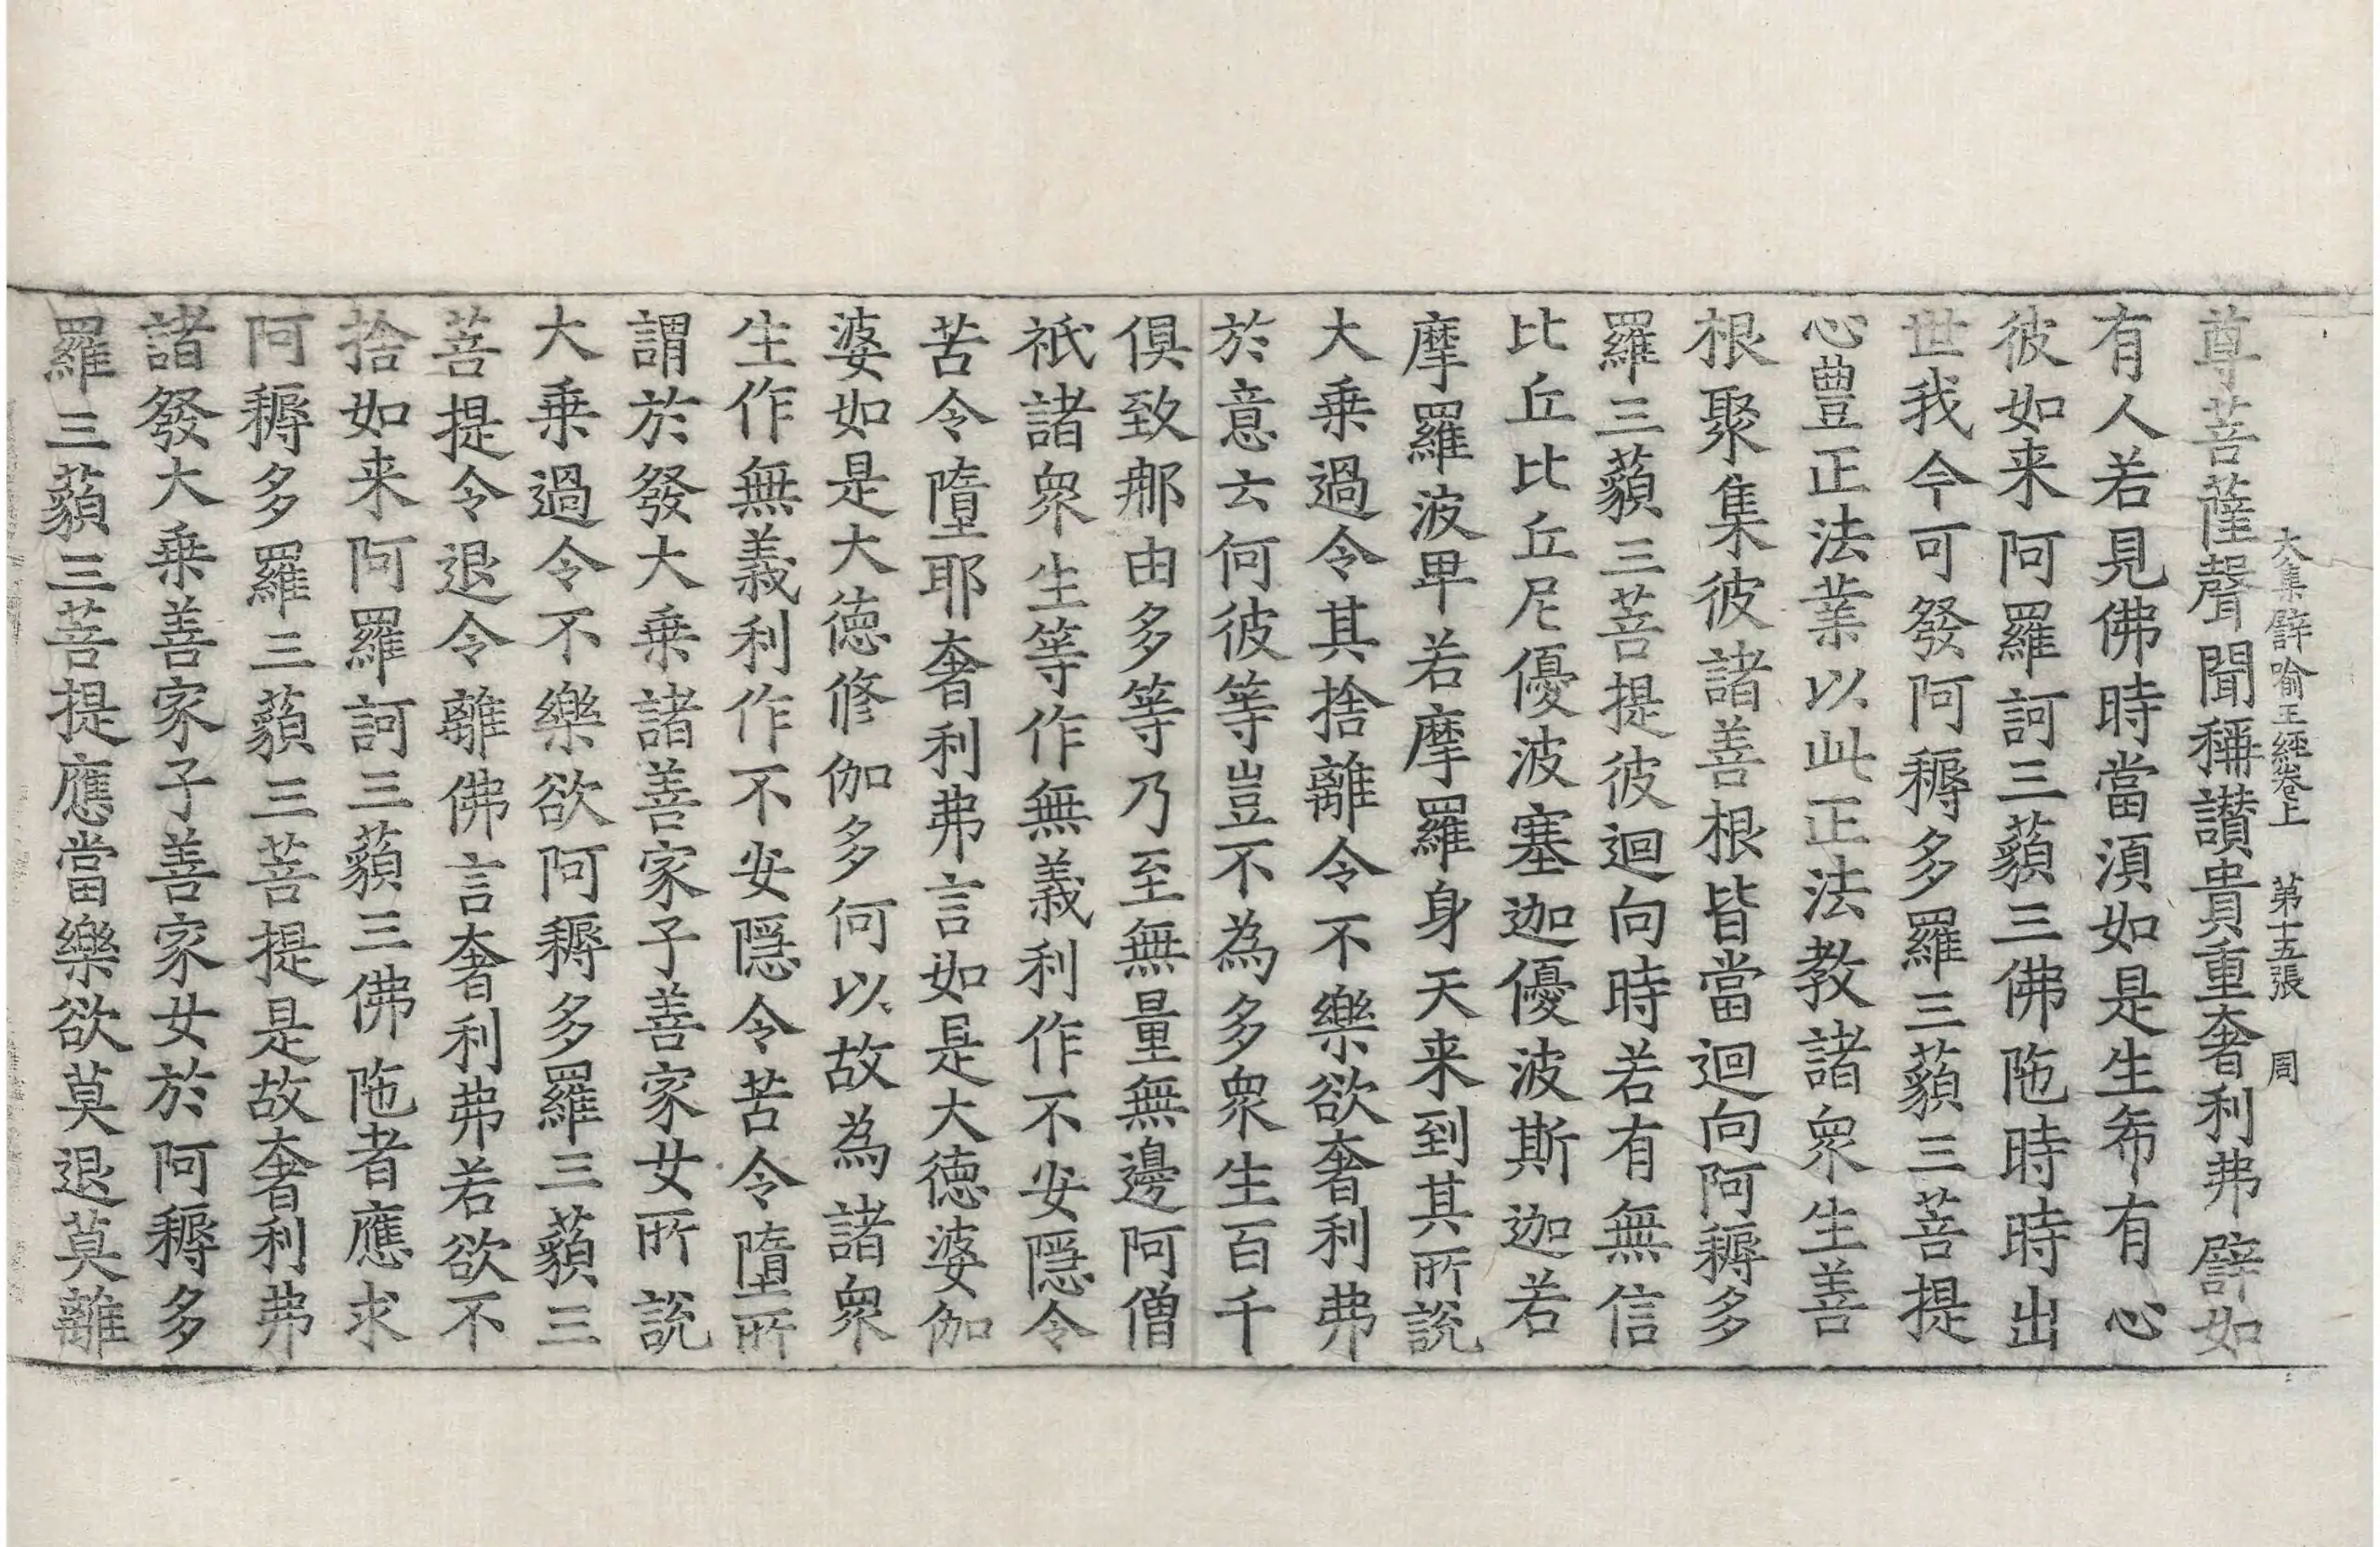 大集譬喻王經卷上　第十五張　周
尊菩薩聲聞稱讃貴重奢利弗譬如
有人若見佛時當湏如是生希有心
彼如来阿羅訶三藐三佛陁時時出
世我今可發阿耨多羅三藐三菩提
心豊正法業以此正法教諸衆生善
根聚集彼諸善根皆當迴向阿耨多
羅三藐三菩提彼迴向時若有無信
比丘比丘尼優波塞迦優波斯迦若
摩羅波卑若摩羅身天来到其所說
大乗過令其捨離令不樂欲奢利弗
於意云何彼等豈不為多衆生百千
俱致那由多等乃至無量無邊阿僧
祇諸衆生等作無義利作不安隱令
苦令墮耶奢利弗言如是大徳婆伽
婆如是大徳修伽多何以故為諸衆
生作無義利作不安隱令苦令墮所
謂於發大乗諸善家子善家女所說
大乗過令不樂欲阿耨多羅三藐三
菩提令退令離佛言奢利弗若欲不
捨如来阿羅訶三藐三佛陁者應求
阿耨多羅三藐三菩提是故奢利弗
諸發大乗善家子善家女於阿耨多
羅三藐三菩提應當樂欲莫退莫離